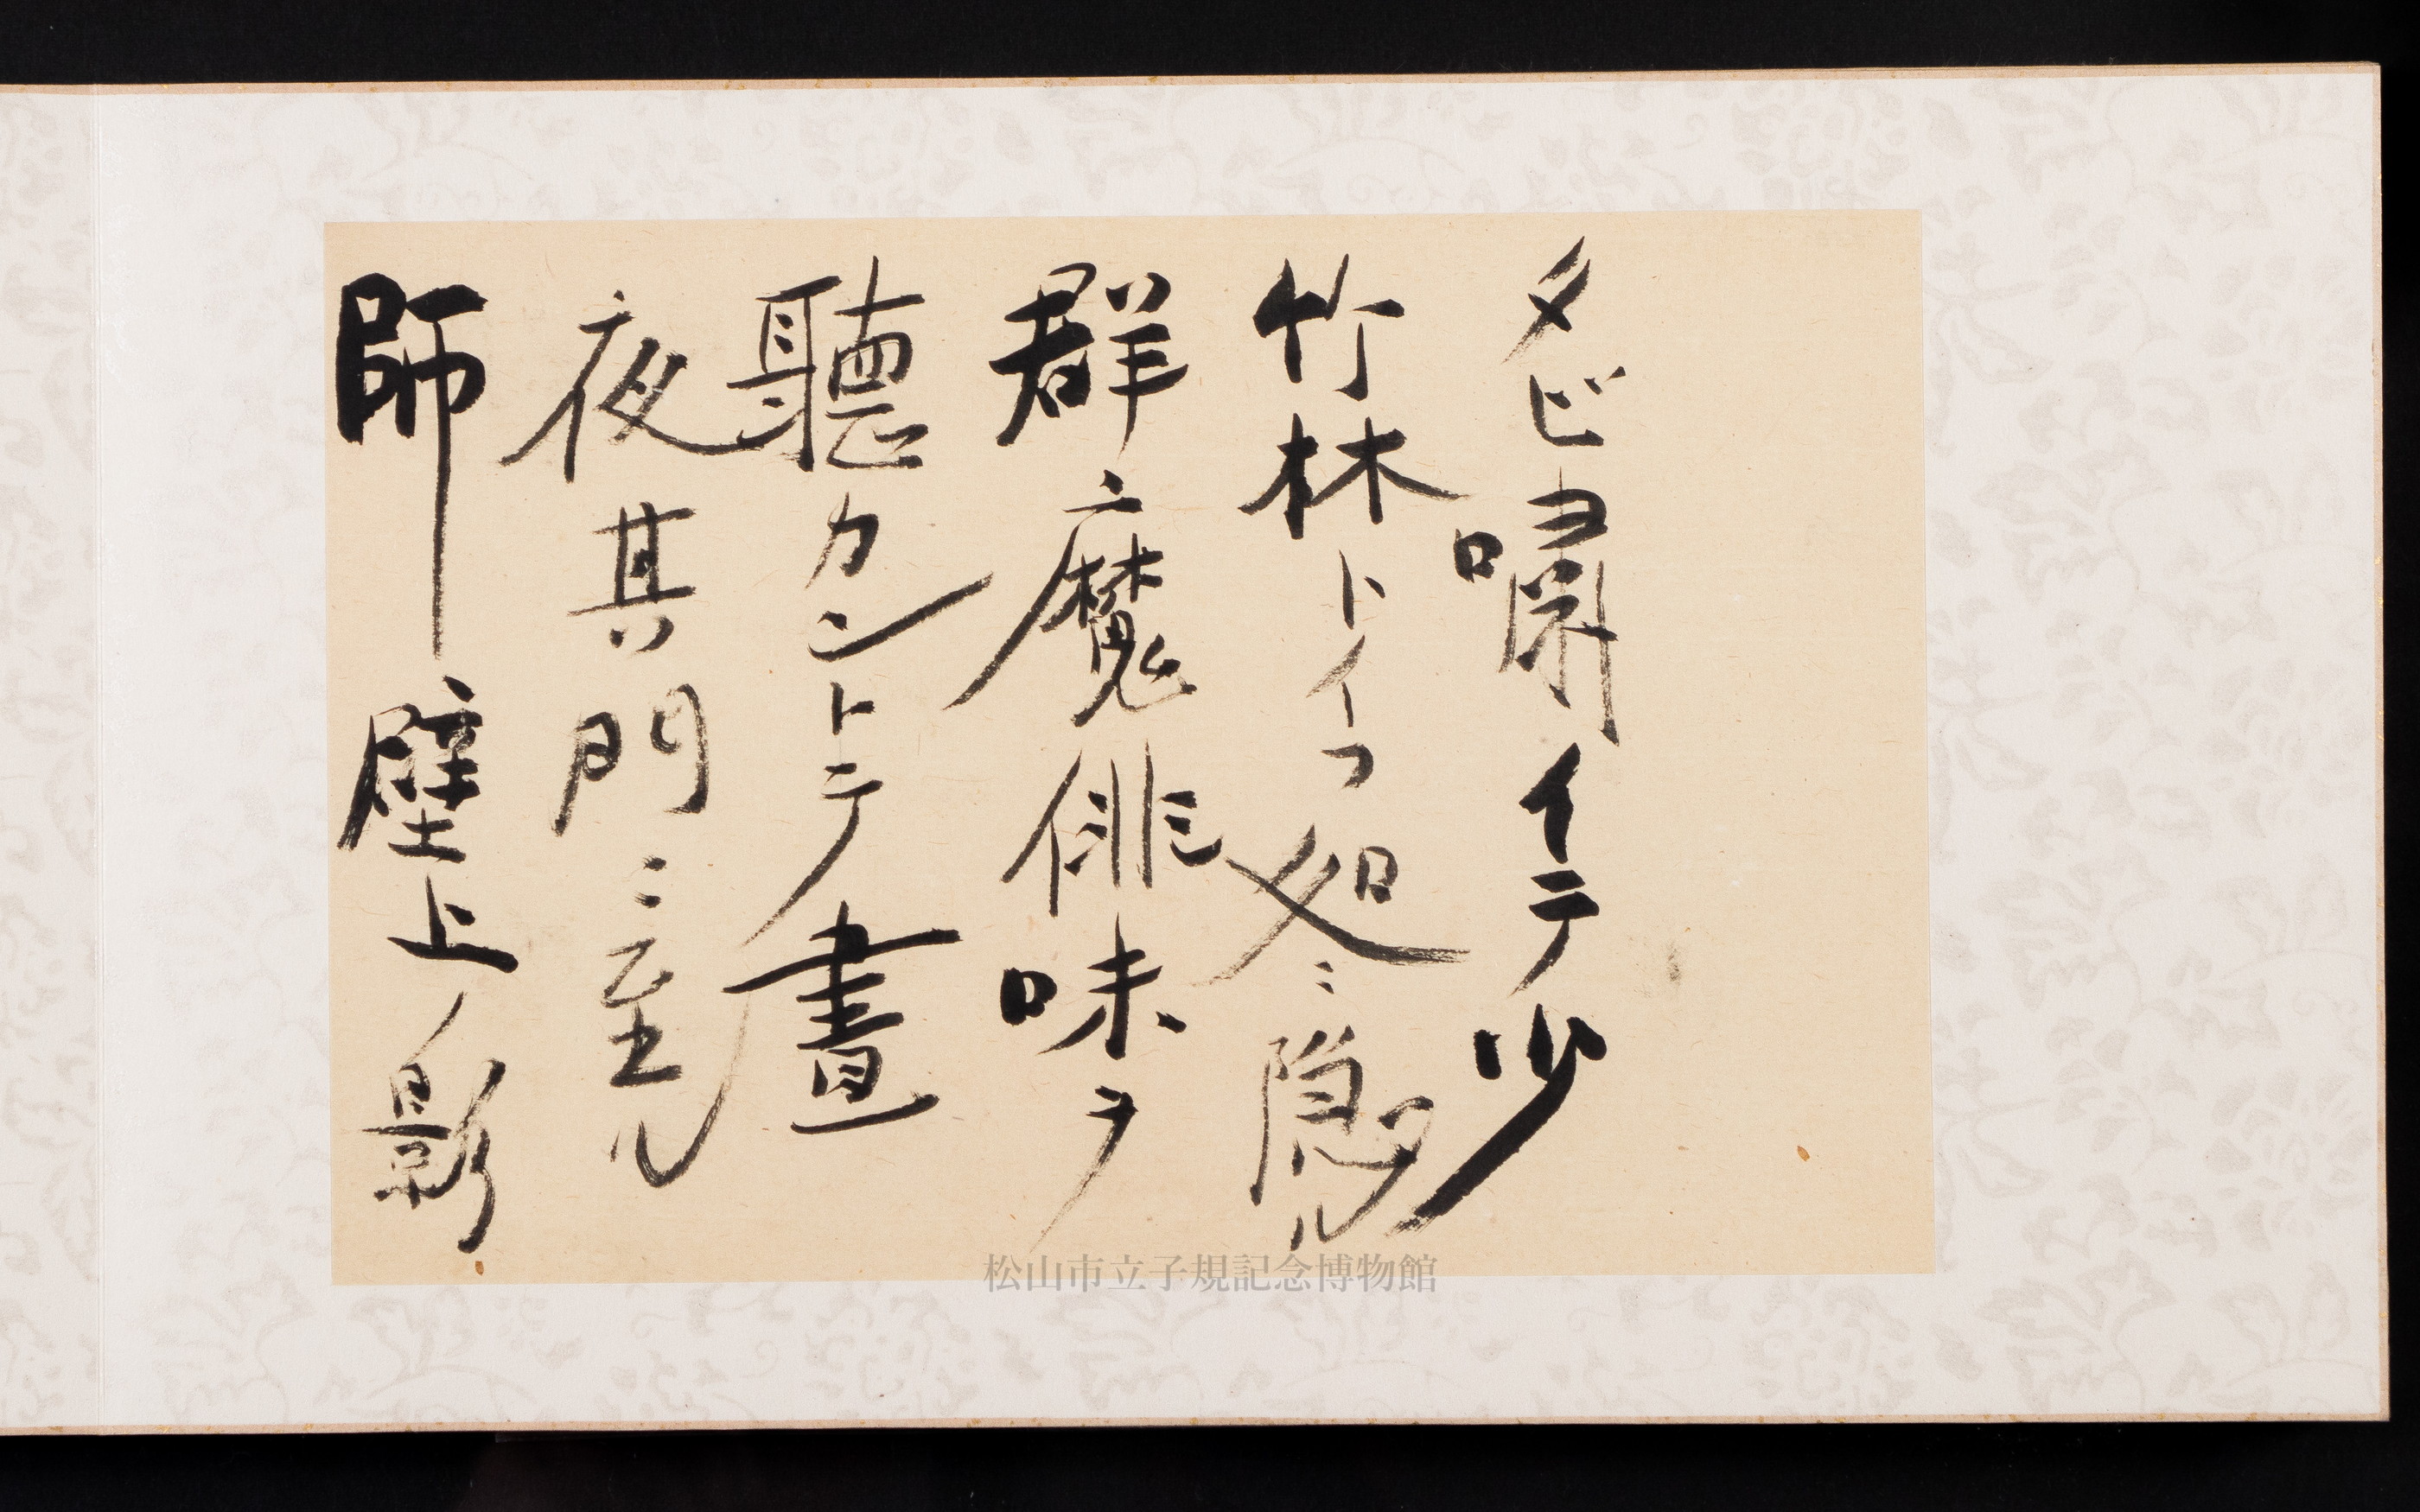 タビ嘯イテ少
竹林トイフ処ニ隠ル
群魔俳味ヲ
聴カントテ昼
夜其門ニ至ル
師壁上ノ影
松山市立子規記念博物館